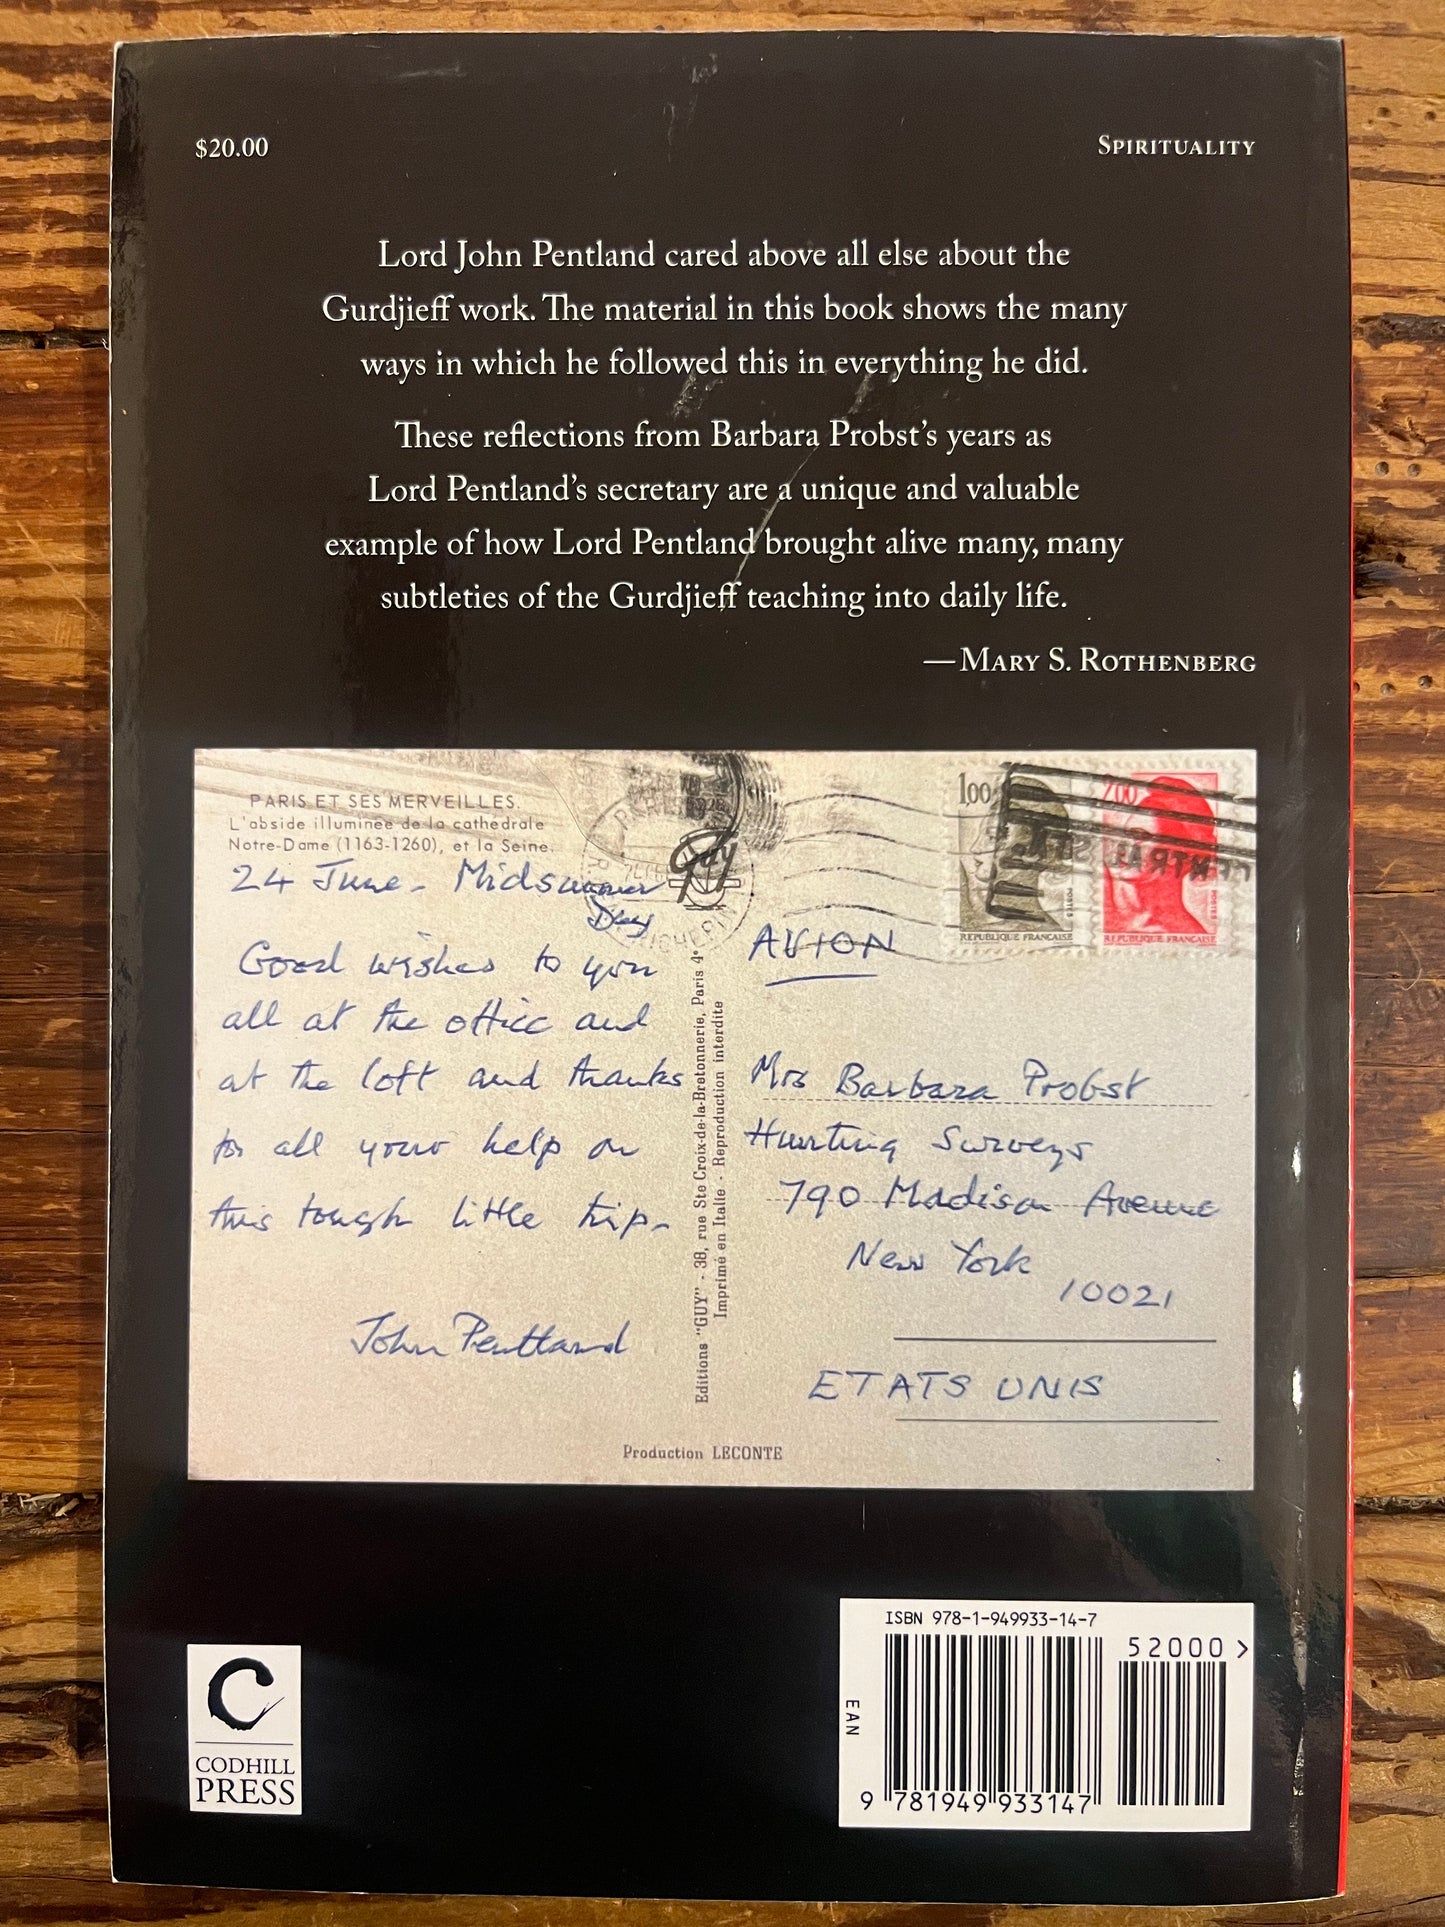 $20.00
SPIRITUALITY
Lord John Pentland cared above all else about the
Gurdjieff work. The material in this book shows the many
ways in which he followed this in everything he did.
These reflections from Barbara Probst's years as
Lord Pentland's secretary are a unique and valuable
example of how Lord Pentland brought alive many, many
subtleties of the Gurdjieff teaching into daily life.
—MARY S. ROTHENBERG
PARIS ET SES MERVEILLES.
L'abside illuminée de la cathédrale
Notre-Dame (1163-1260), et la Seine.
Guy
24 June - Midsummer
Day
Good wishes to you
all at the office and
at the loft and thanks
for all your help on
this tough little trip-
John Pentland
Editions "GUY" - 38, rue Ste Croix-de-la-Bretonnerie, Paris 4e
Imprimé en Italie - Reproduction interdite
1,00
REPUBLIQUE FRANCAISE
POSTES
2,00
REPUBLIQUE FRANCAISE
POSTES
CENTRAL
AVION
Mrs Barbara Probst
Hunting Surveys
790 Madison Avenue
New York
10021
ETATS UNIS
Production LECONTE
CODHILL
PRESS
ISBN 978-1-949933-14-7
52000>
EAN
9 781949 933147